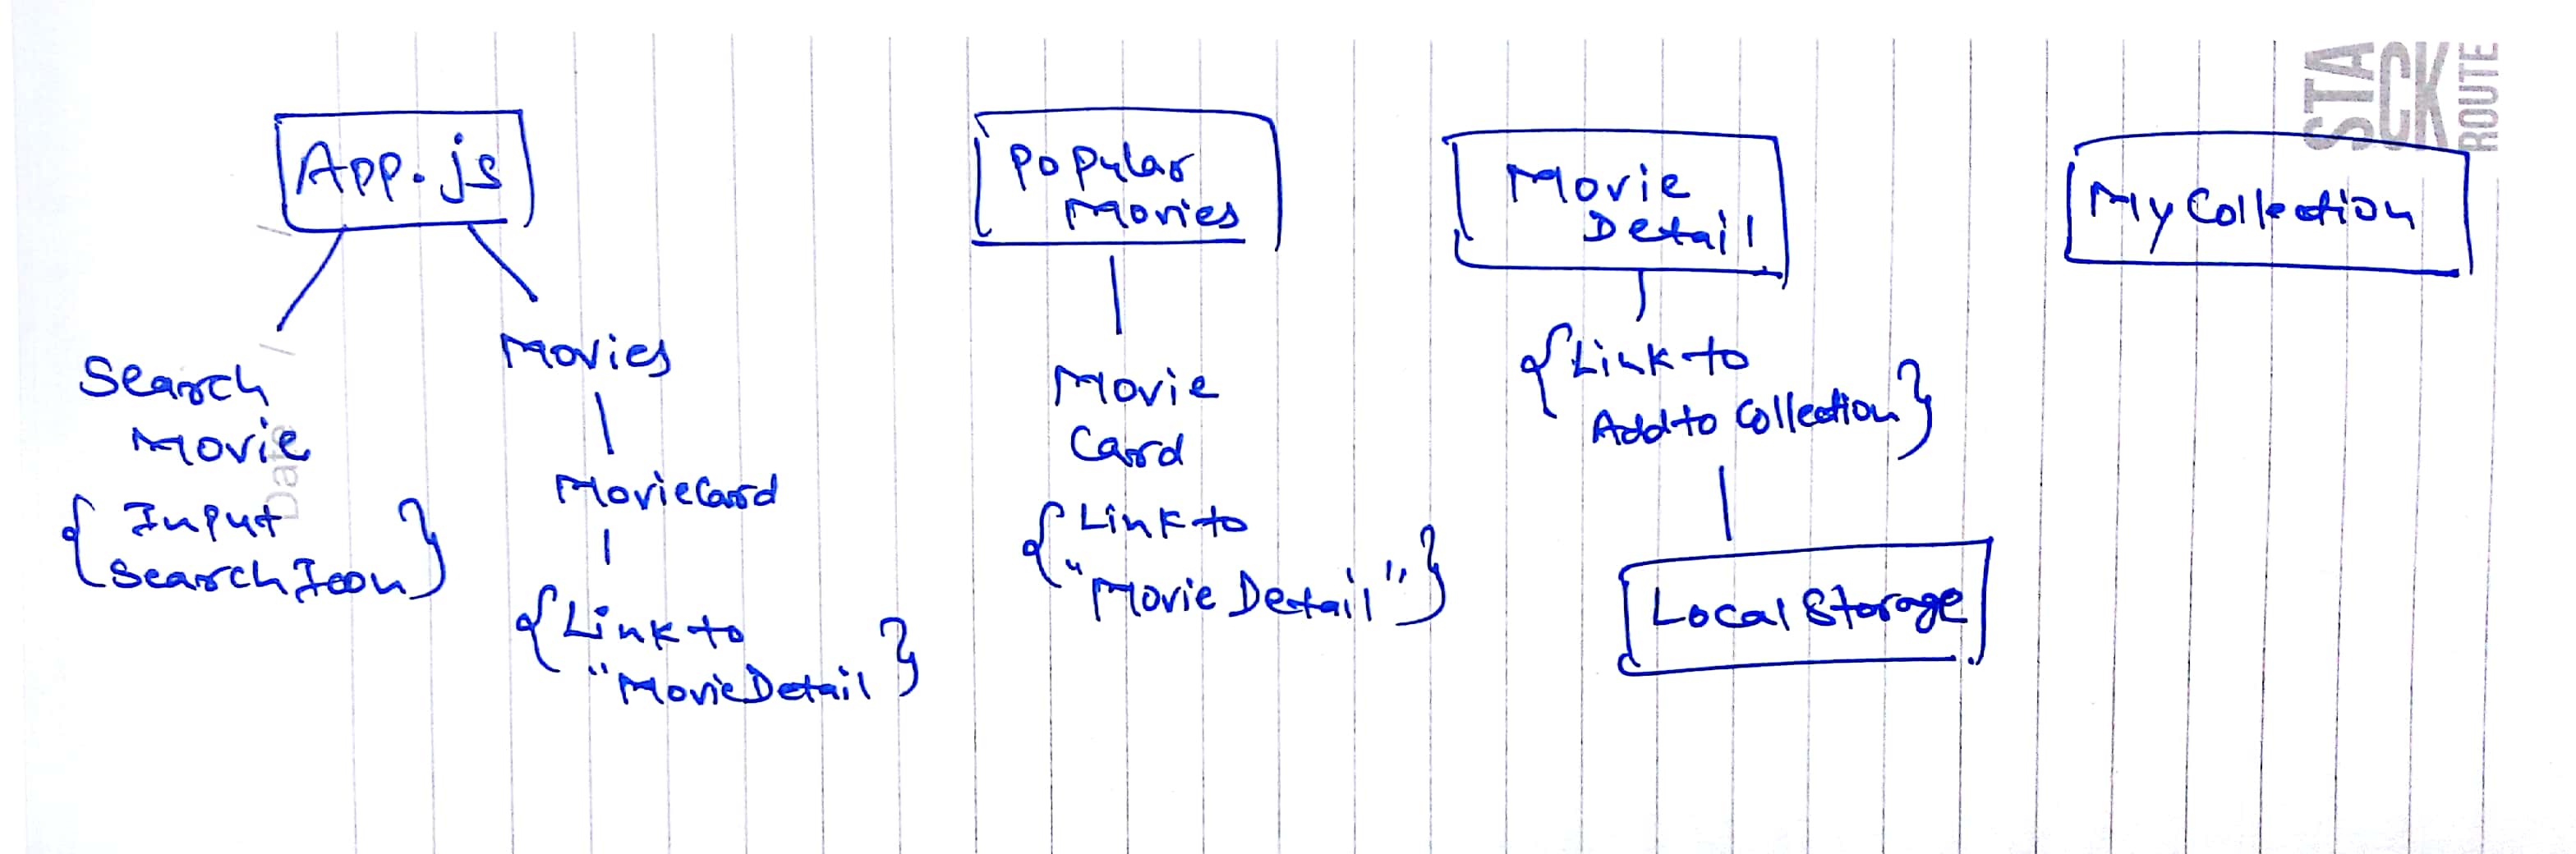 App.js
Search
Movie
{ Input
SearchIcon }
Movies
MovieCard
{ Link to
"MovieDetail }
Popular
Movies
Movie
Card
{ Link to
"Movie Detail" }
Movie
Detail
{ Link to
Add to Collection }
Local Storage
My Collection
STA
CK
ROUTE
Date